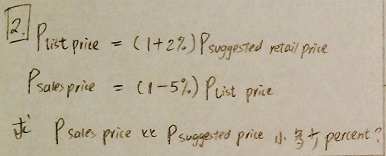 2.
P list price = (1+2%) P suggested retail price
P sales price = (1-5%) P list price
求 P sales price 比 P suggested price 小 多少 percent?